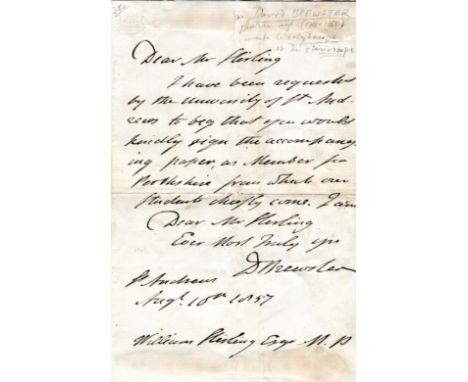 Sir David BREWSTER
Dear Mr Stirling
I have been requested
by the University of St And
rews to beg that you would
kindly sign the accompany
ing paper, as Member for
Perthshire from which our
Students chiefly come. I am
Dear Mr Stirling
Ever Most Truly yrs
D Brewster
St Andrews
Augt 10th 1857
William Stirling Esqr M.P